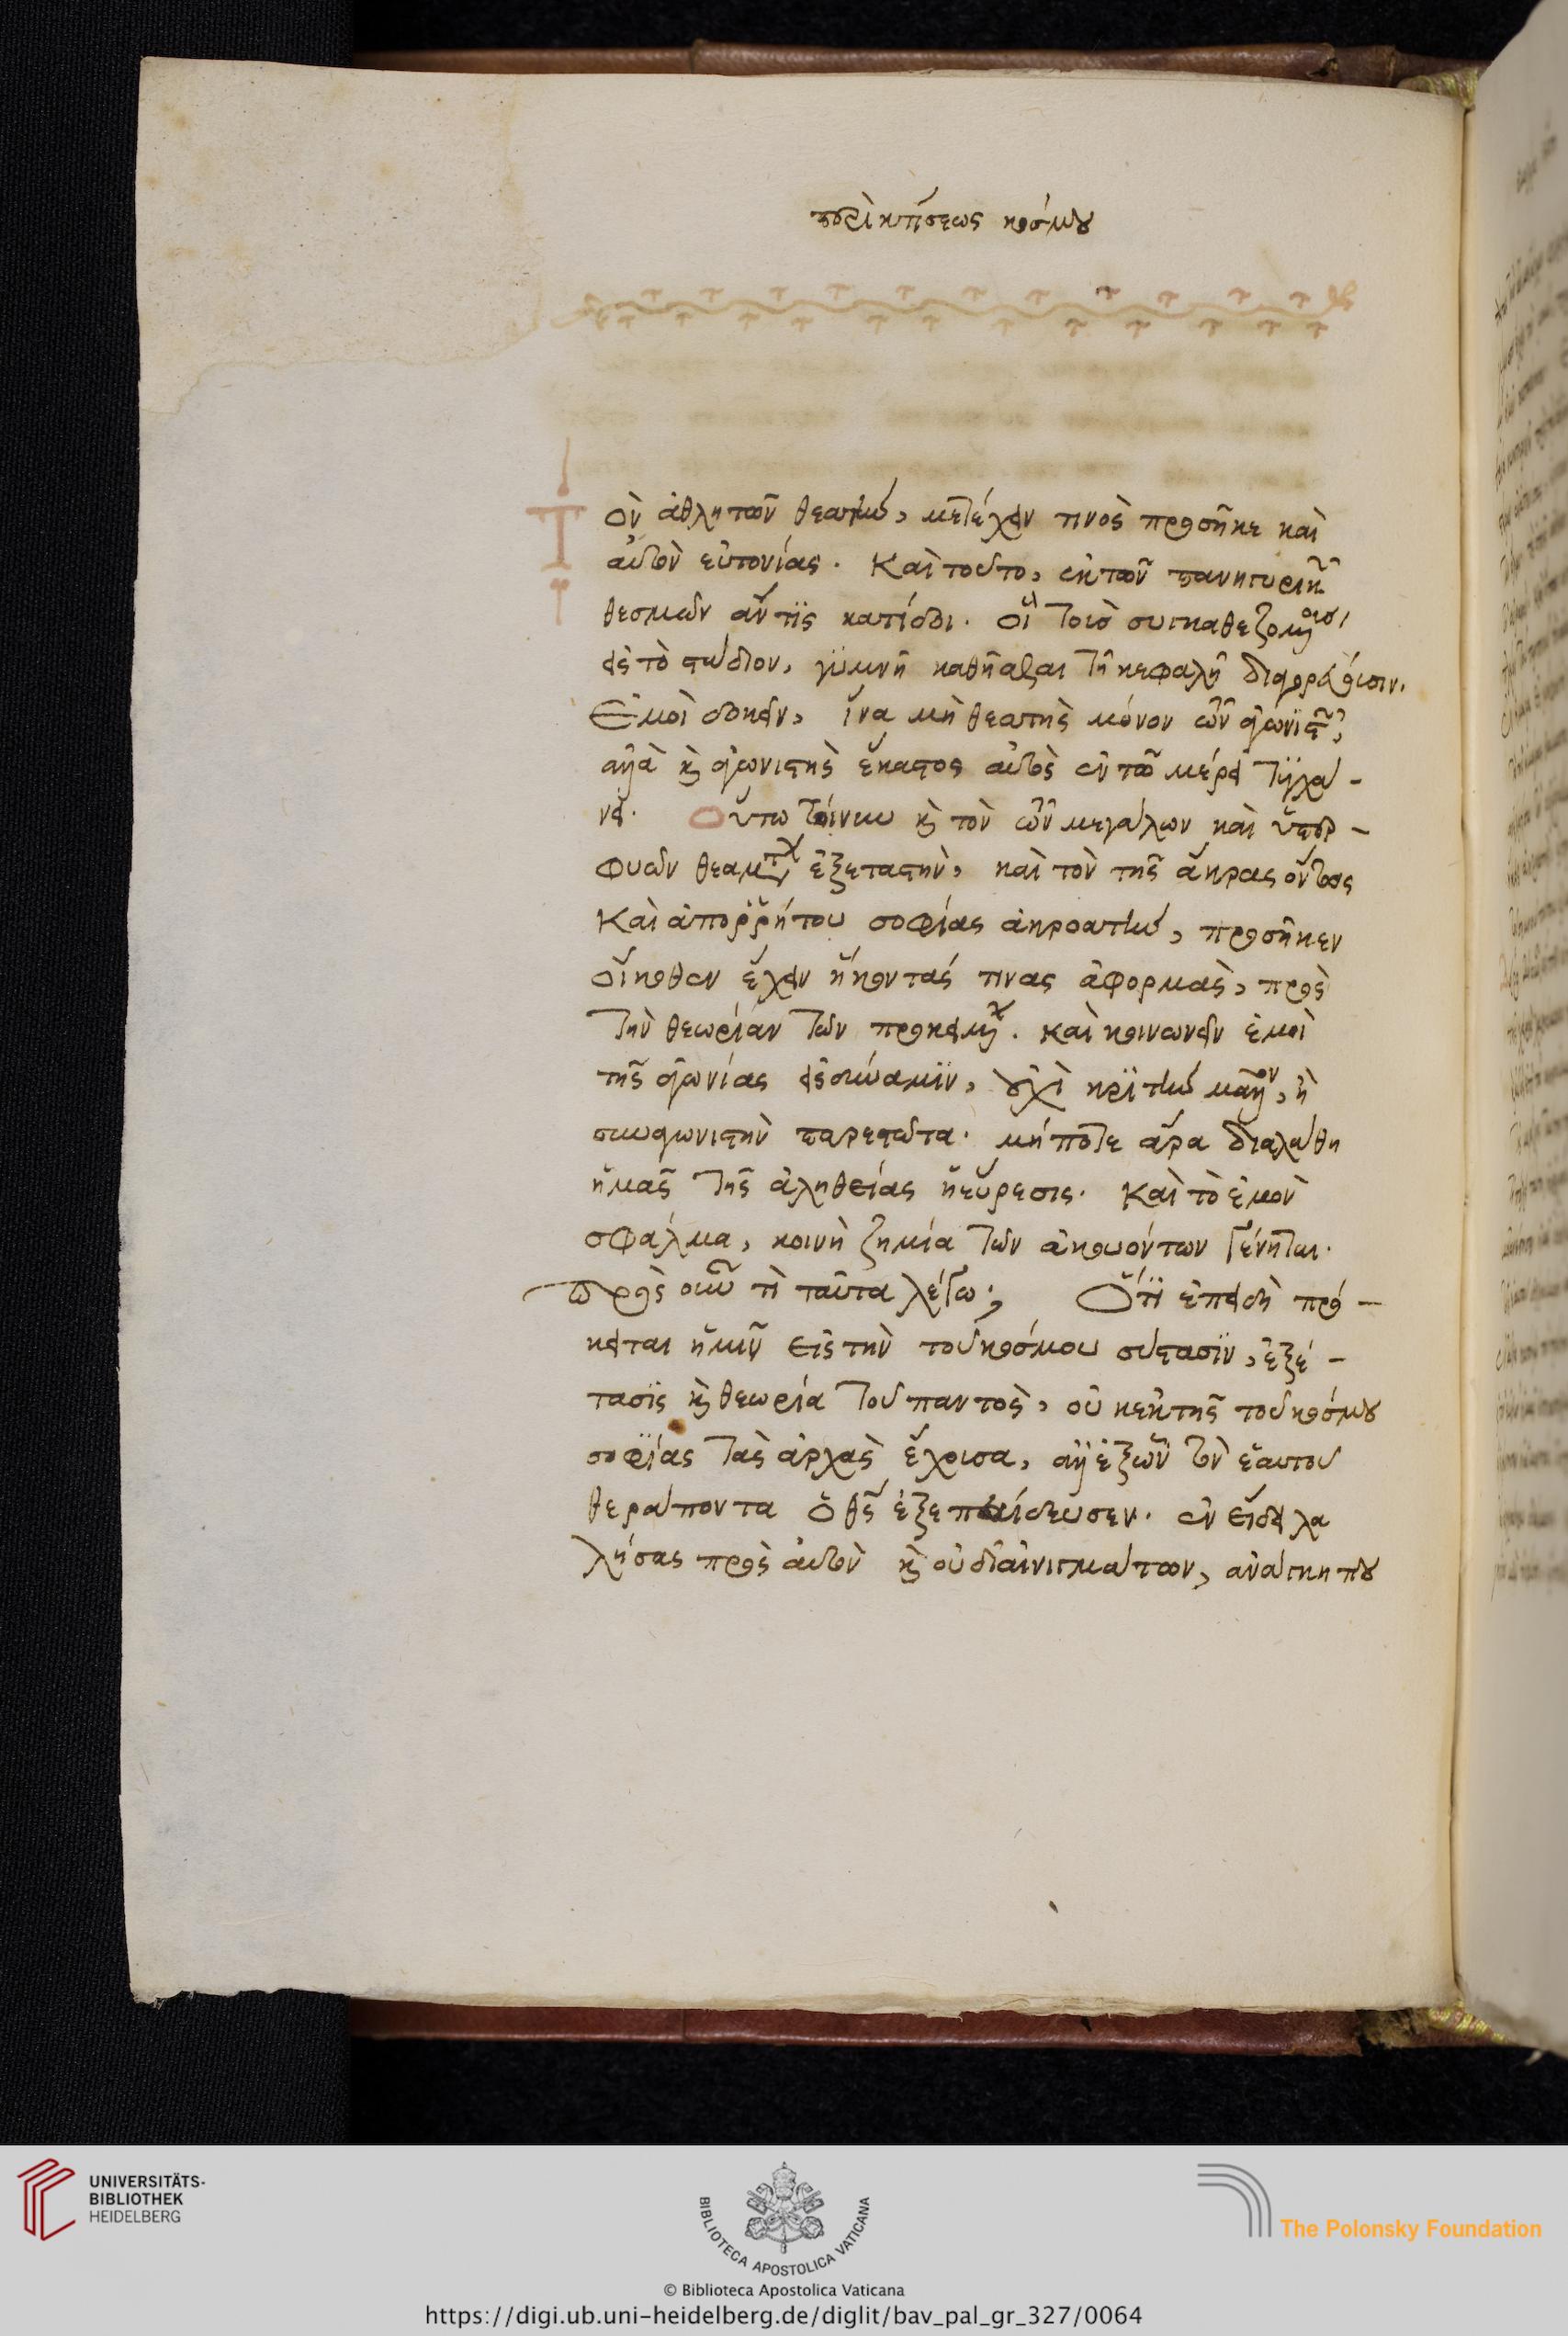 περὶ κτίσεως κόσμου
Τὸν ἀθλητῶν θεατὴν, μετέχειν τινὸς προσῆκε καὶ
αὐτὸν εὐτονίας. Καὶ τοῦτο, ἐκ τῶν πανηγυρικῶν
θεσμῶν ἄν τις κατίδοι. οἳ τοὺς συγκαθεζομένους
εἰς τὸ στάδιον, γυμνῇ καθῆσθαι τῇ κεφαλῇ διαγορεύουσιν.
Ἐμοὶ δοκεῖν, ἵνα μὴ θεατὴς μόνον τῶν ἀγωνιστῶν,
ἀλλὰ καὶ ἀγωνιστὴς ἕκαστος αὐτὸς ἐν τῷ μέρει τυγχά-
νει. Οὕτω τοίνυν καὶ τὸν τῶν μεγάλων καὶ ὑπερ-
φυῶν θεαμάτων ἐξεταστὴν, καὶ τὸν τῆς ἄκρας ὄντως
καὶ ἀπορρήτου σοφίας ἀκροατὴν, προσῆκεν
οἴκοθεν ἔχειν ἥκοντάς τινας ἀφορμὰς, πρὸς
τὴν θεωρίαν τῶν προκειμένων. καὶ κοινωνεῖν ἐμοὶ
τῆς ἀγωνίας εἰς δύναμιν, οὐχὶ κριτὴν μᾶλλον, ἢ
συναγωνιστὴν παρεστῶτα. μήποτε ἄρα διαλάθῃ
ἡμᾶς τῆς ἀληθείας ἡ εὕρεσις. Καὶ τὸ ἐμὸν
σφάλμα, κοινὴ ζημία τῶν ἀκουόντων γένηται.
Πρὸς οὖν τί ταῦτα λέγω; Ὅτι ἐπειδὴ πρό-
κειται ἡμῖν εἰς τὴν τοῦ κόσμου σύστασιν, ἐξέ-
τασις καὶ θεωρία τοῦ παντὸς, οὐκ ἐκ τῆς τοῦ κόσμου
σοφίας τὰς ἀρχὰς ἔχουσα, ἀλλ' ἐξ ὧν τὸν ἑαυτοῦ
θεράποντα ὁ θεὸς ἐξεπαίδευσεν. ἐν εἴδει λα
λήσας πρὸς αὐτὸν καὶ οὐ δι' αἰνιγμάτων, ἀνάγκη που
UNIVERSITÄTS-
BIBLIOTHEK
HEIDELBERG
BIBLIOTECA APOSTOLICA VATICANA
The Polonsky Foundation
© Biblioteca Apostolica Vaticana
https://digi.ub.uni-heidelberg.de/diglit/bav_pal_gr_327/0064